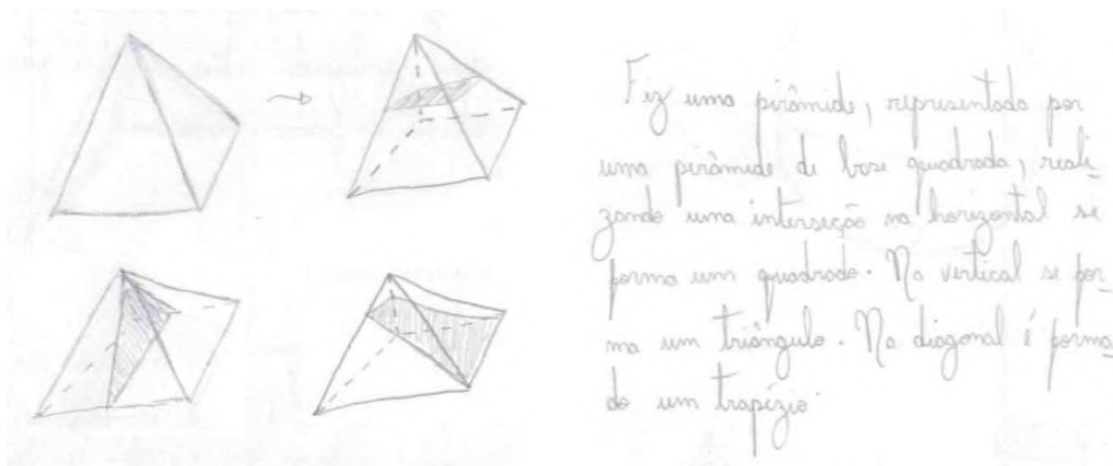 Fiz uma pirâmide, representada por
uma pirâmide de base quadrada, reali-
zando uma interseção na horizontal se
forma um quadrado. Na vertical se for-
ma um triângulo. Na diagonal é forma-
do um trapézio.